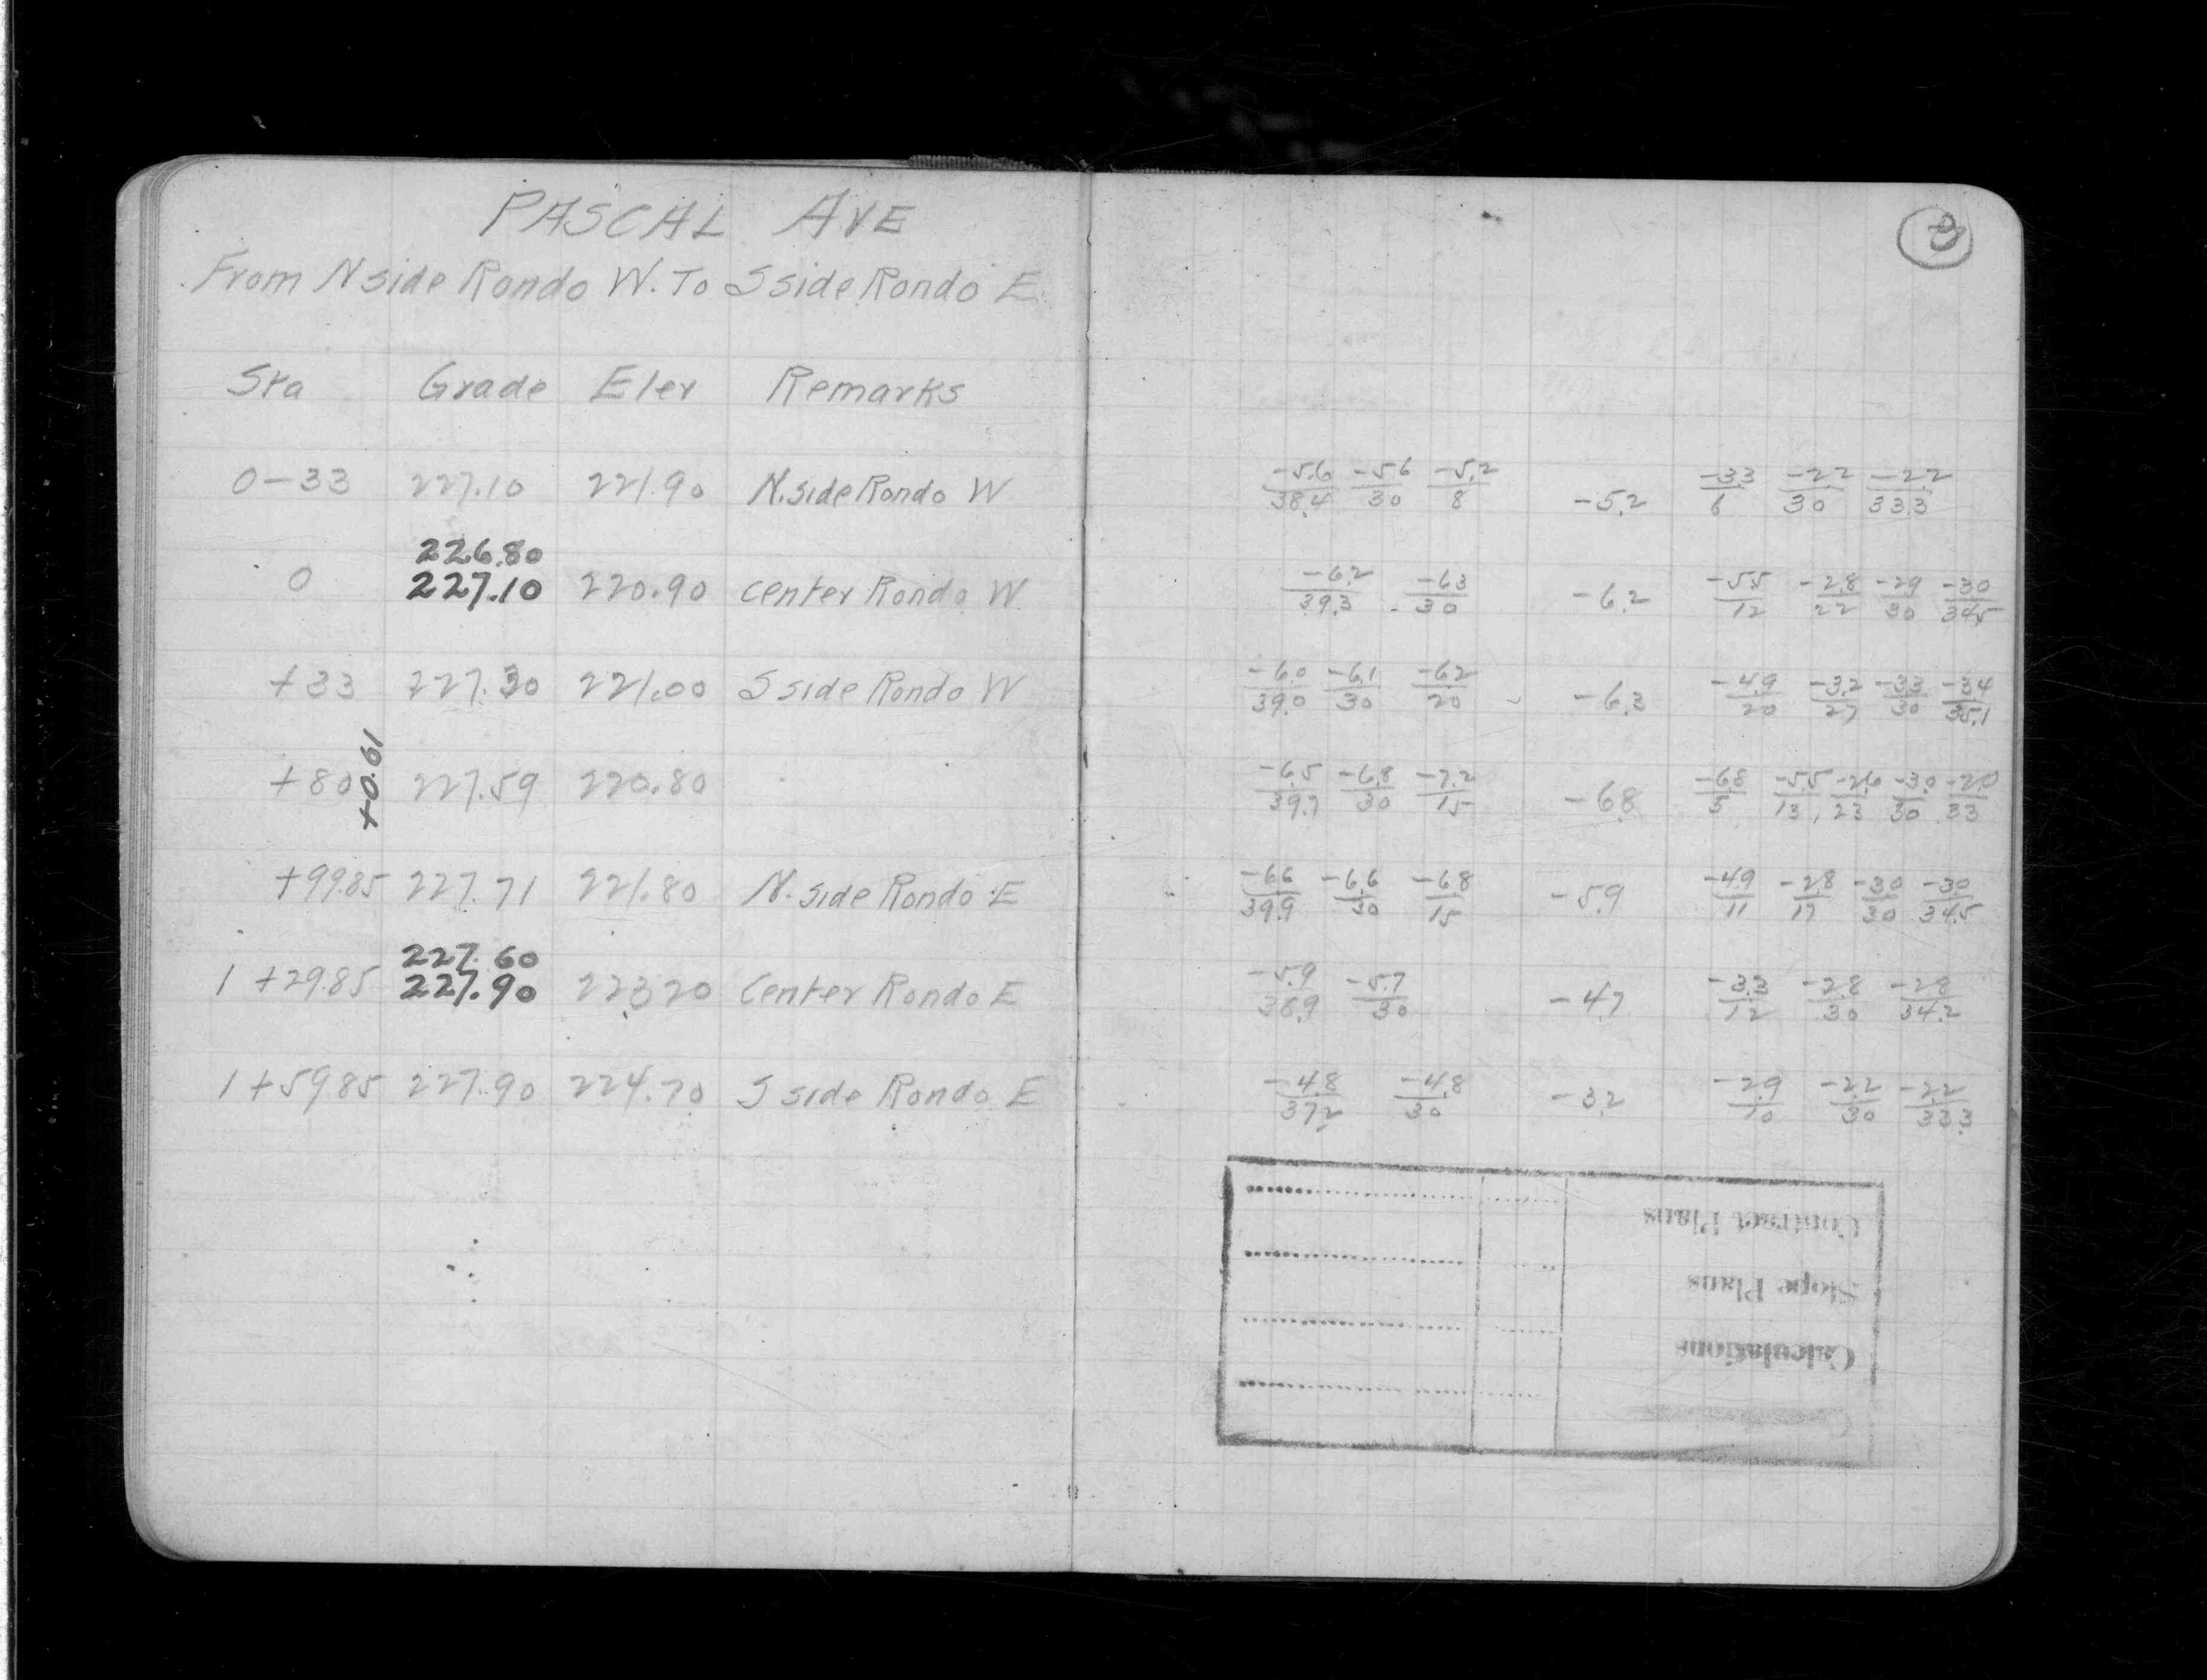 PASCAL AVE
From N side Rondo W. To S side Rondo E
Sta Grade Elev Remarks
0-33 227.10 221.90 N. side Rondo W
226.80
0 227.10 220.90 center Rondo W.
+33 227.30 221.00 S side Rondo W
+0.61
+80 227.59 220.80
+99.85 227.71 221.80 N. side Rondo E
227.60
1 +29.85 227.90 223.20 Center Rondo E
1 +59.85 227.90 224.70 S side Rondo E
3
-5.6 -5.6 -5.2 -3.3 -2.2 -2.2
38.4 30 8 -5.2 6 30 33.3
-6.2 -6.3 -5.5 -2.8 -2.9 -3.0
39.3 30 -6.2 12 22 30 34.5
-6.0 -6.1 -6.2 -4.9 -3.2 -3.3 -3.4
39.0 30 20 -6.3 20 27 30 35.1
-6.5 -6.8 -7.2 -6.8 -5.5 -2.6 -3.0 -2.0
39.7 30 15 -6.8 5 13 23 30 33
-6.6 -6.6 -6.8 -4.9 -2.8 -3.0 -3.0
39.9 30 15 -5.9 11 17 30 34.5
-5.9 -5.7 -3.3 -2.8 -2.8
38.9 30 -4.7 12 30 34.2
-4.8 -4.8 -2.9 -2.2 -2.2
37.2 30 -3.2 10 30 33.3
Calculations
Slope Plans
Contract Plans